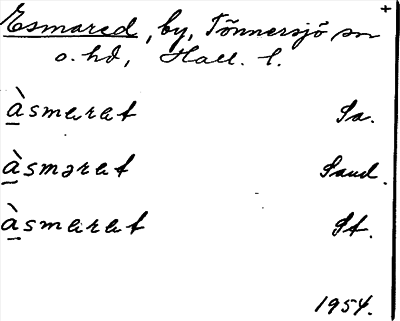 Esmared, by, Tönnersjö sn +
o. hd, Hall. l.
àsmarat Sa.
àsmərat Sand.
àsmarat St.
1954.